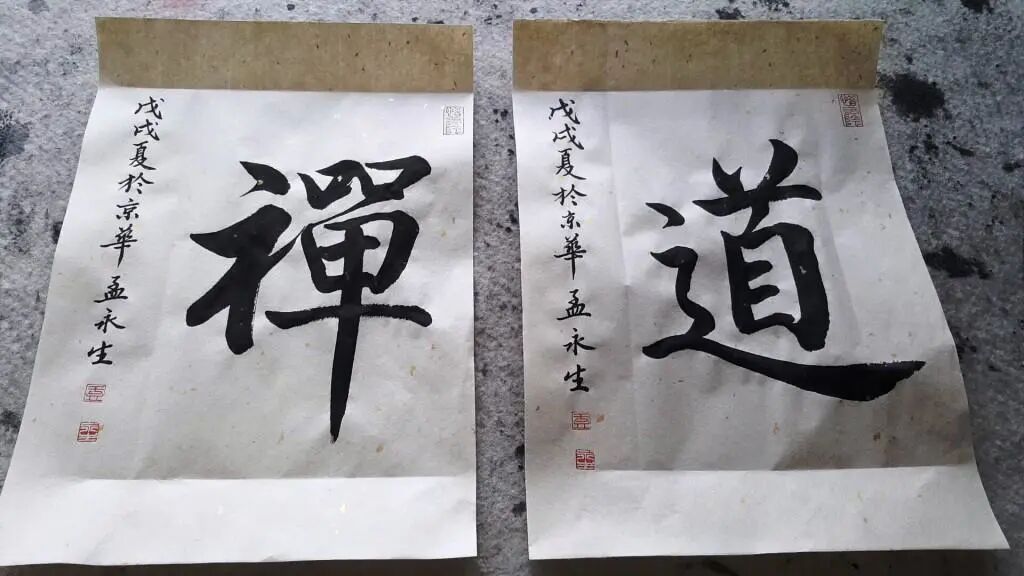 禪
戊戌夏於京華 孟永生
道
戊戌夏於京華 孟永生